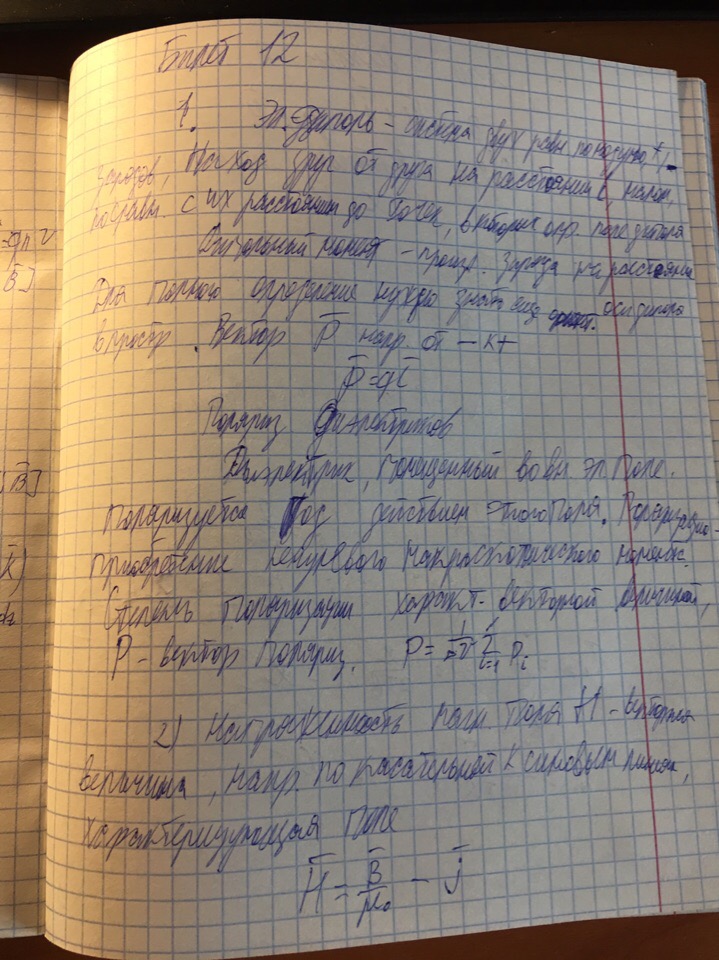 Билет 12
1. Эл. Диполь – система двух равн по модулю +, –
зарядов, наход друг от друга на расстоянии l, малом,
по сравн с их расстоянием до точек, в которых опр. поле диполя
Дипольный момент – произв. заряда на расстояние
Для полного определения нужно знать еще оси диполя
в простр. Вектор P̅ напр. от – к +
P̅=ql̅
Поляриз Диэлектриков
Диэлектрик, помещенный во вн эл. поле.
поляризуется под действием этого поля. Поляризацию-
приобретение ненулевого макроскопического
Степень поляризации характ. векторной величиной,
P – вектор поляриз. P = 1/ΔV Σ i=1 Pi
2) Напряженность магн. поля H – векторная
величина, напр. по касательной к силовым линиям,
характеризующая поле
H̅ = B̅/μ₀ – J̅
=qnV
B̅]
B̅]